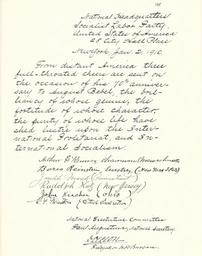 National Headquarters
Socialist Labor Party
United States of America
28 City Hall Place
New York Jan. 2, 1910.
From distant America three
full-throated cheers are sent on
the occasion of his 70th anniver-
sary to August Bebel, the bril-
liancy of whose genius, the
fortitude of whose character,
the purity of whose life have
shed lustre upon the Inter-
national Proletariat, and In-
ternational Socialism.
Arthur
Boris Reinstein
Rudolph Katz (New Jersey)
John Kircher (Ohio)
National Executive Committee
Paul Augustine, National Secretary